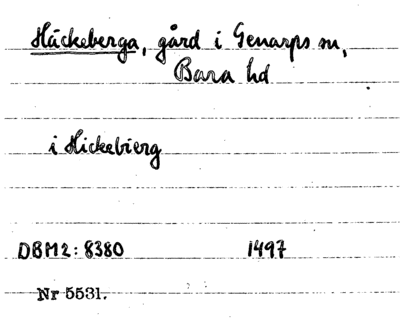 Häckeberga, gård i Genarps sn,
Bara hd
i Hickebierg
DBM2: 8380 1497
Nr 5531.